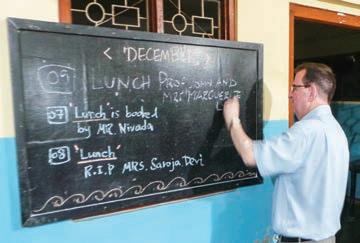 < DECEMBER >
09 LUNCH PROF. JOHN AND
MRS MARGUERITE
07 'Lunch' is booked
by MR. Nivada
08 'Lunch'
R.I.P MRS. Saroja Devi